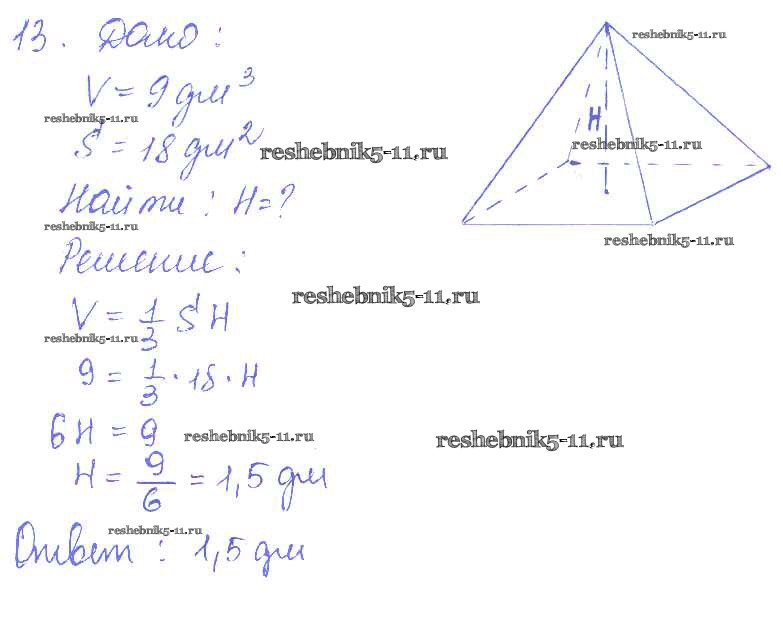 13. Дано:
reshebnik5-11.ru
V = 9 дм³
reshebnik5-11.ru
S = 18 дм²
reshebnik5-11.ru
H
reshebnik5-11.ru
Найти: H = ?
reshebnik5-11.ru
reshebnik5-11.ru
Решение:
reshebnik5-11.ru
V = 1/3 S H
reshebnik5-11.ru
9 = 1/3 · 18 · H
6H = 9
reshebnik5-11.ru
reshebnik5-11.ru
H = 9/6 = 1,5 дм
reshebnik5-11.ru
Ответ: 1,5 дм